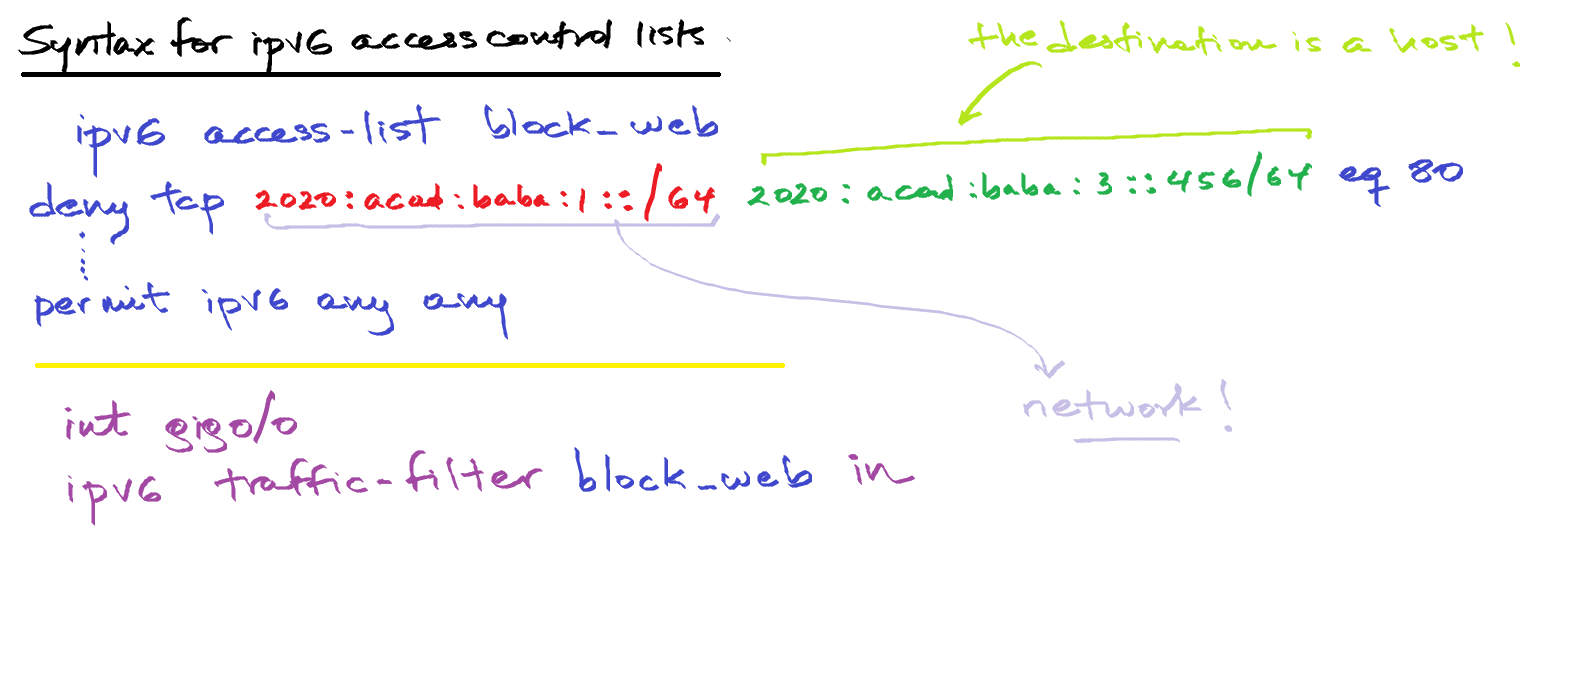 Syntax for ipv6 access control lists
the destination is a host!
ipv6 access-list block_web
deny tcp 2020:acad:baba:1::/64 2020:acad:baba:3::456/64 eq 80
permit ipv6 any any
int gig0/0
network!
ipv6 traffic-filter block_web in